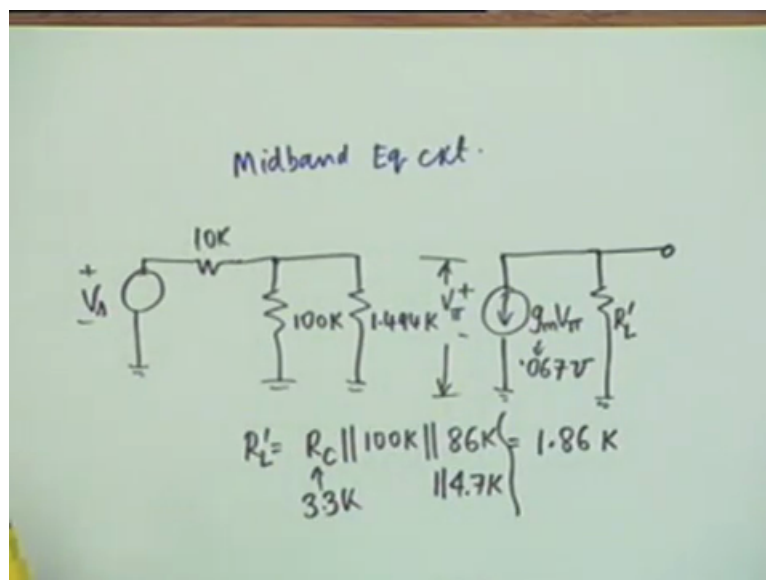 Midband Eq ckt.
10K
+
Vs
-
100K
1.494K
Vπ
+
-
gmVπ
.067℧
RL'
RL' = RC || 100K || 86K = 1.86 K
3.3K
|| 4.7K